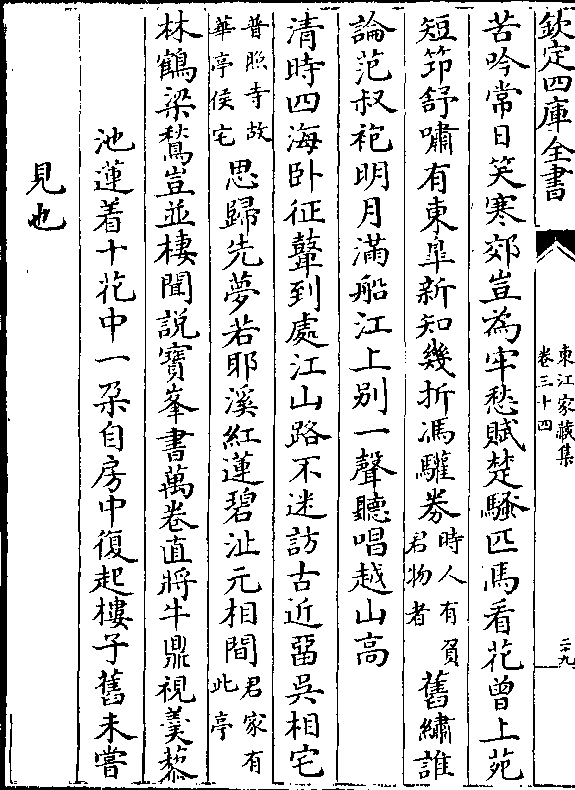 欽定四庫全書
東江家藏集
卷三十四
二十九
苦吟常日笑寒郊豈為牢愁賦楚騷匹馬看花曾上苑
短笻舒嘯有東臯新知幾折馮驩券時人有負君物者舊繡誰
論范叔袍明月滿船江上别一聲聽唱越山高
清時四海卧征鼙到處江山路不迷訪古近畱吳相宅
普照寺故華亭侯宅思歸先夢若耶溪紅蓮碧沚元相間君家有此亭
林鶴梁鶖豈並棲聞説寶峯書萬卷直將牛鼎視羮藜
池蓮着十花中一朶自房中復起樓子舊未嘗
見也